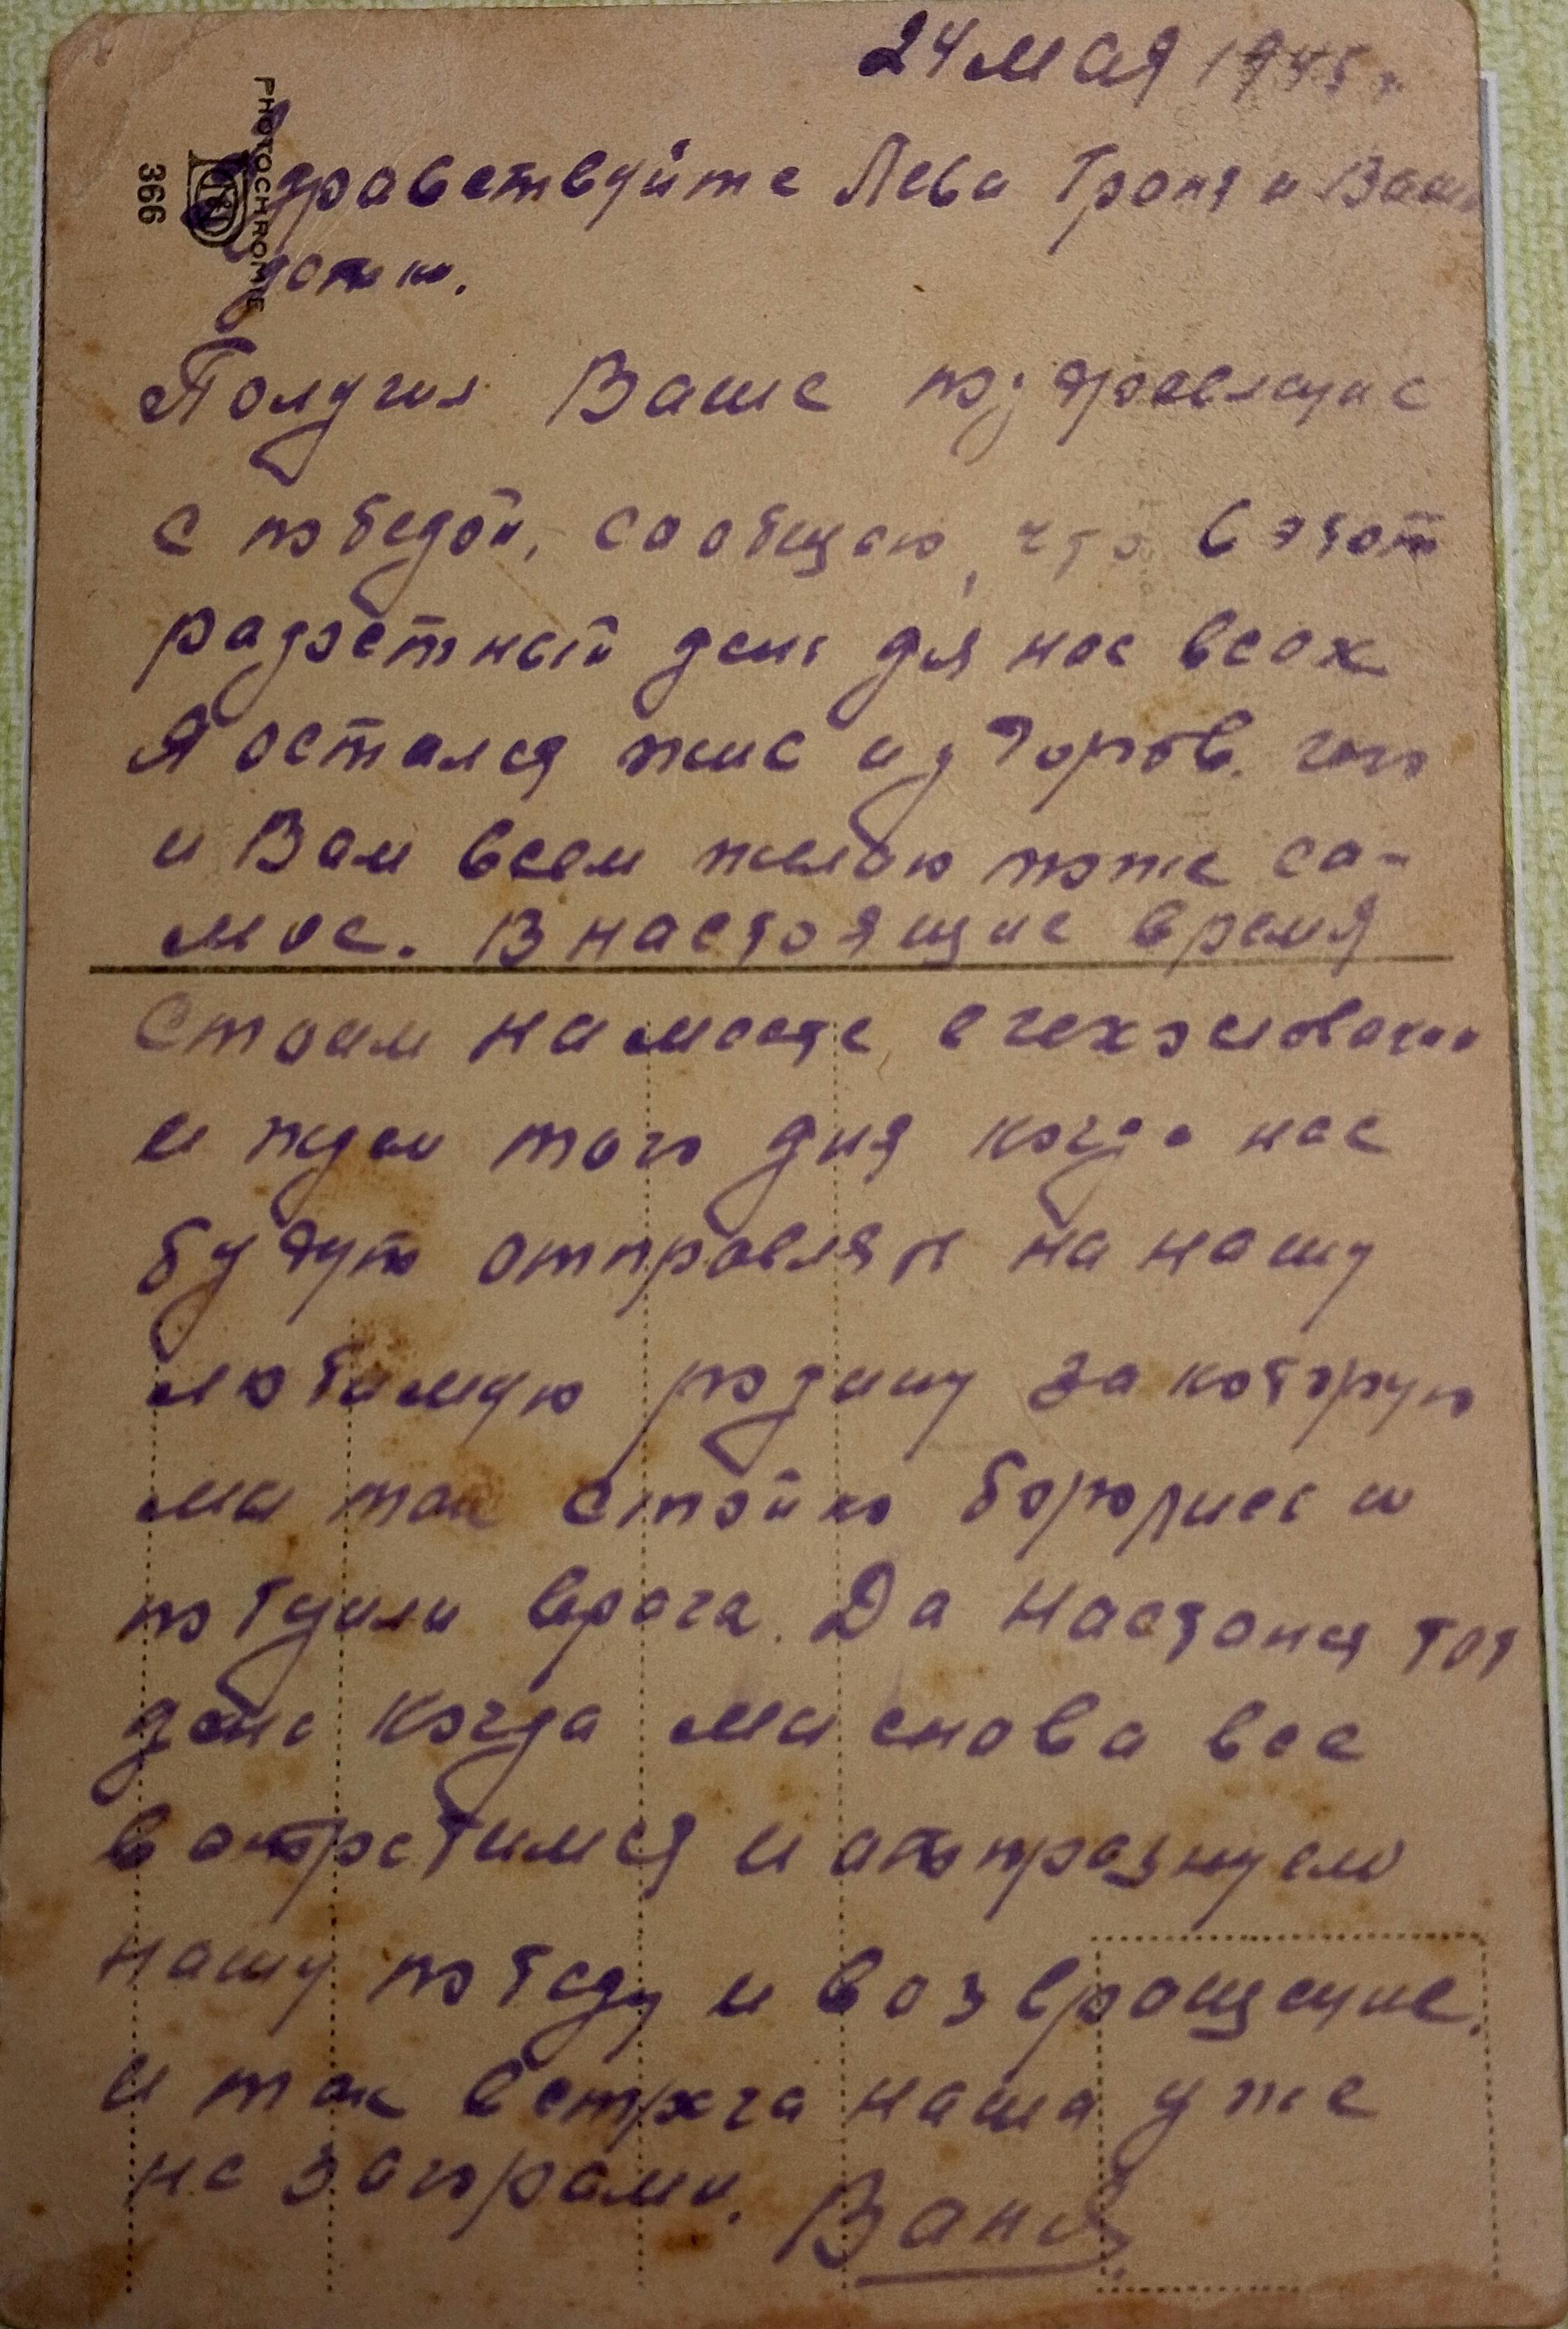 24 мая 1945 г.
PHOTOCHROMIE
366
Здравствуйте Лева Граня и Ваши
детки.
Получил Ваше поздравление
с победой, сообщаю, что в этот
радостный день для нас всех
Я остался жив и здоров. чего
и Вам всем желаю тоже са-
мое. В настоящие время
Стоим на месте, в чехословакии
и ждем того дня когда нас
будут отправлят на нашу
любимую родину за которую
мы так стойко боролись и
победили врага. Да настанет тот
день когда мы снова все
встретимся и отпразнуем
нашу победу и возвращение.
и так встреча наша уже
не загорами. Ваня.